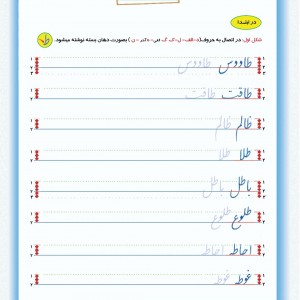 در ابتدا
شکل اول: در اتصال به حروف
بصورت دهان بسته نوشته میشود. ط
طاووس طاووس
طاقت طاقت
ظالم ظالم
طلا طلا
باطل باطل
طلوع طلوع
احاطه احاطه
غوطه غوطه